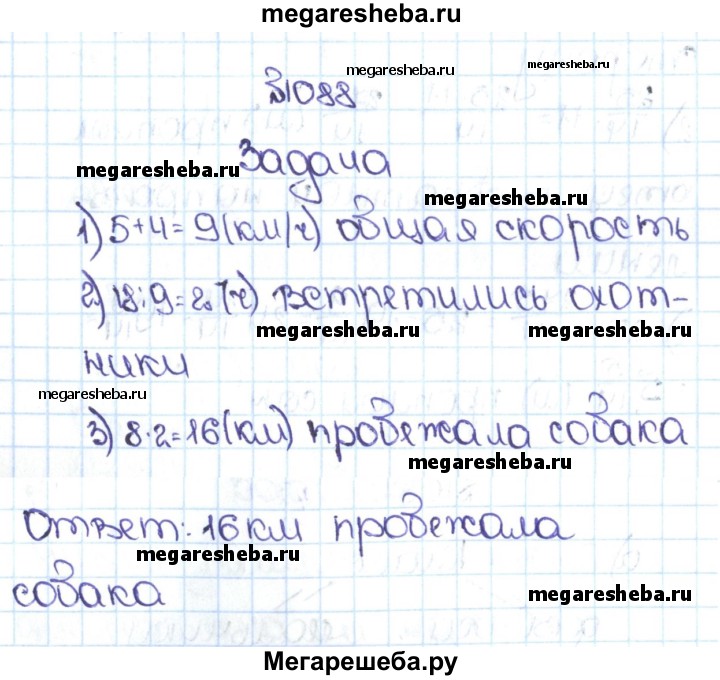 megaresheba.ru
№1088
megaresheba.ru
megaresheba.ru
Задача
megaresheba.ru
megaresheba.ru
1) 5+4=9(км/ч) общая скорость
2) 18:9=2(ч) встретились охот-
megaresheba.ru
megaresheba.ru
ники
megaresheba.ru
3) 8·2=16(км) пробежала собака
megaresheba.ru
Ответ: 16 км пробежала
megaresheba.ru
собака
megaresheba.ru
Мегарешеба.ру